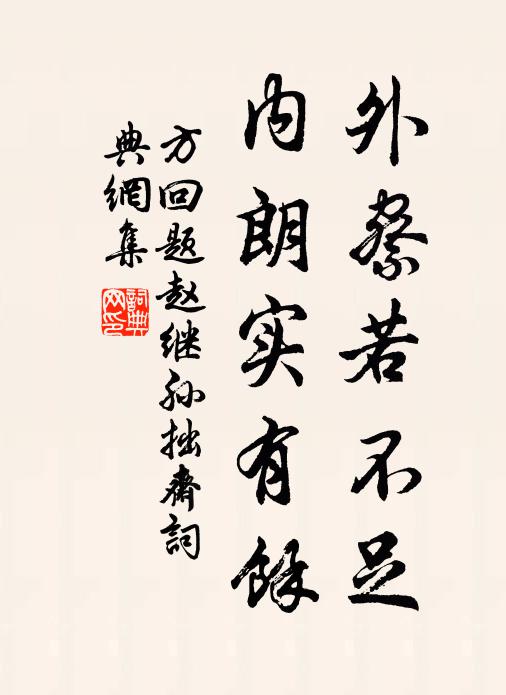 外察若不足
内朗实有馀
方回题赵继孙拙斋詞
典網集
詞典
网印